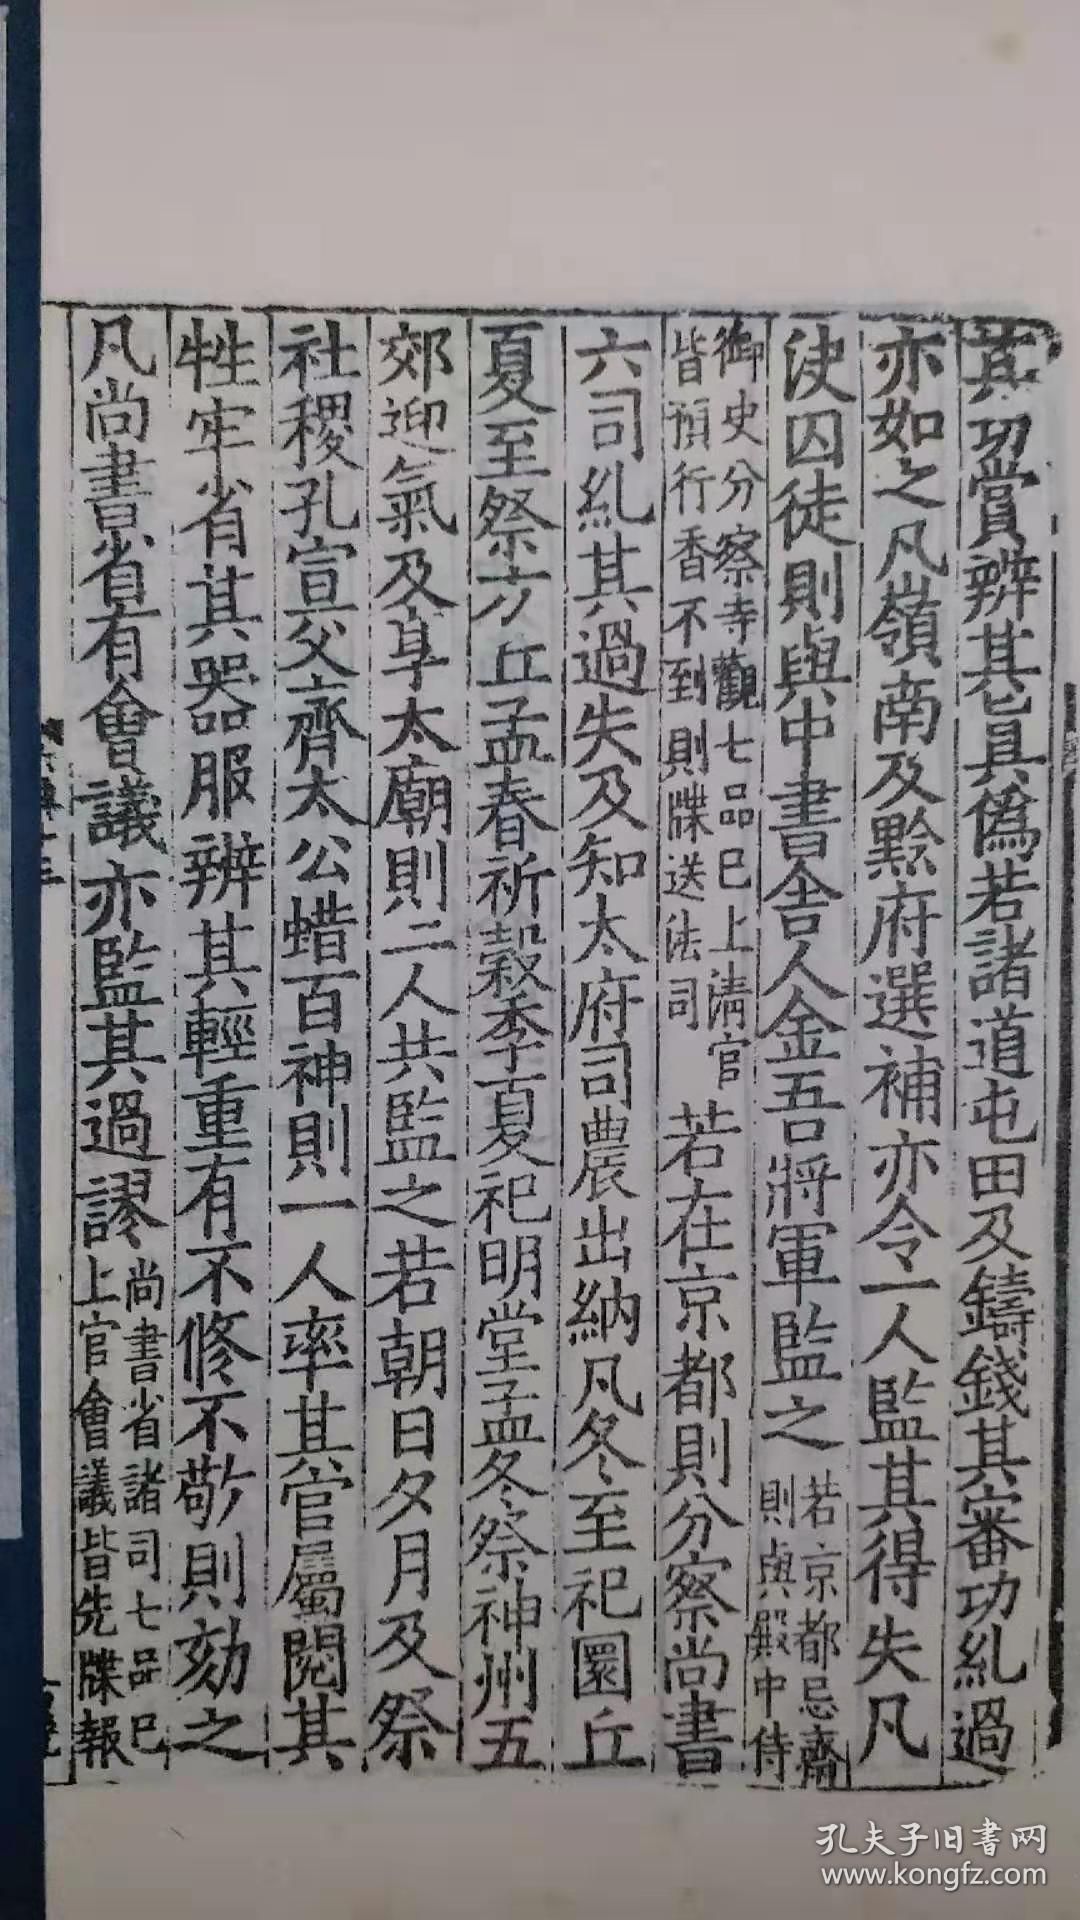 其功賞辨其眞僞若諸道屯田及鑄錢其審功糺過
亦如之凡嶺南及黔府選補亦令一人監其得失凡
決囚徒則與中書舍人金吾將軍監之若京都忌齋則與殿中侍
御史分察寺觀七品已上清官皆預行香不到則牒送法司若在京都則分察尚書
六司糺其過失及知太府司農出納凡冬至祀圜丘
夏至祭方丘孟春祈穀季夏祀明堂孟冬祭神州五
郊迎氣及享太廟則二人共監之若朝日夕月及祭
社稷孔宣父齊太公蜡百神則一人率其官屬閱其
牲牢省其器服辨其輕重有不修不敬則劾之
凡尚書省有會議亦監其過謬尚書省諸司七品已上官會議皆先牒報
孔夫子旧書网
www.kongfz.com